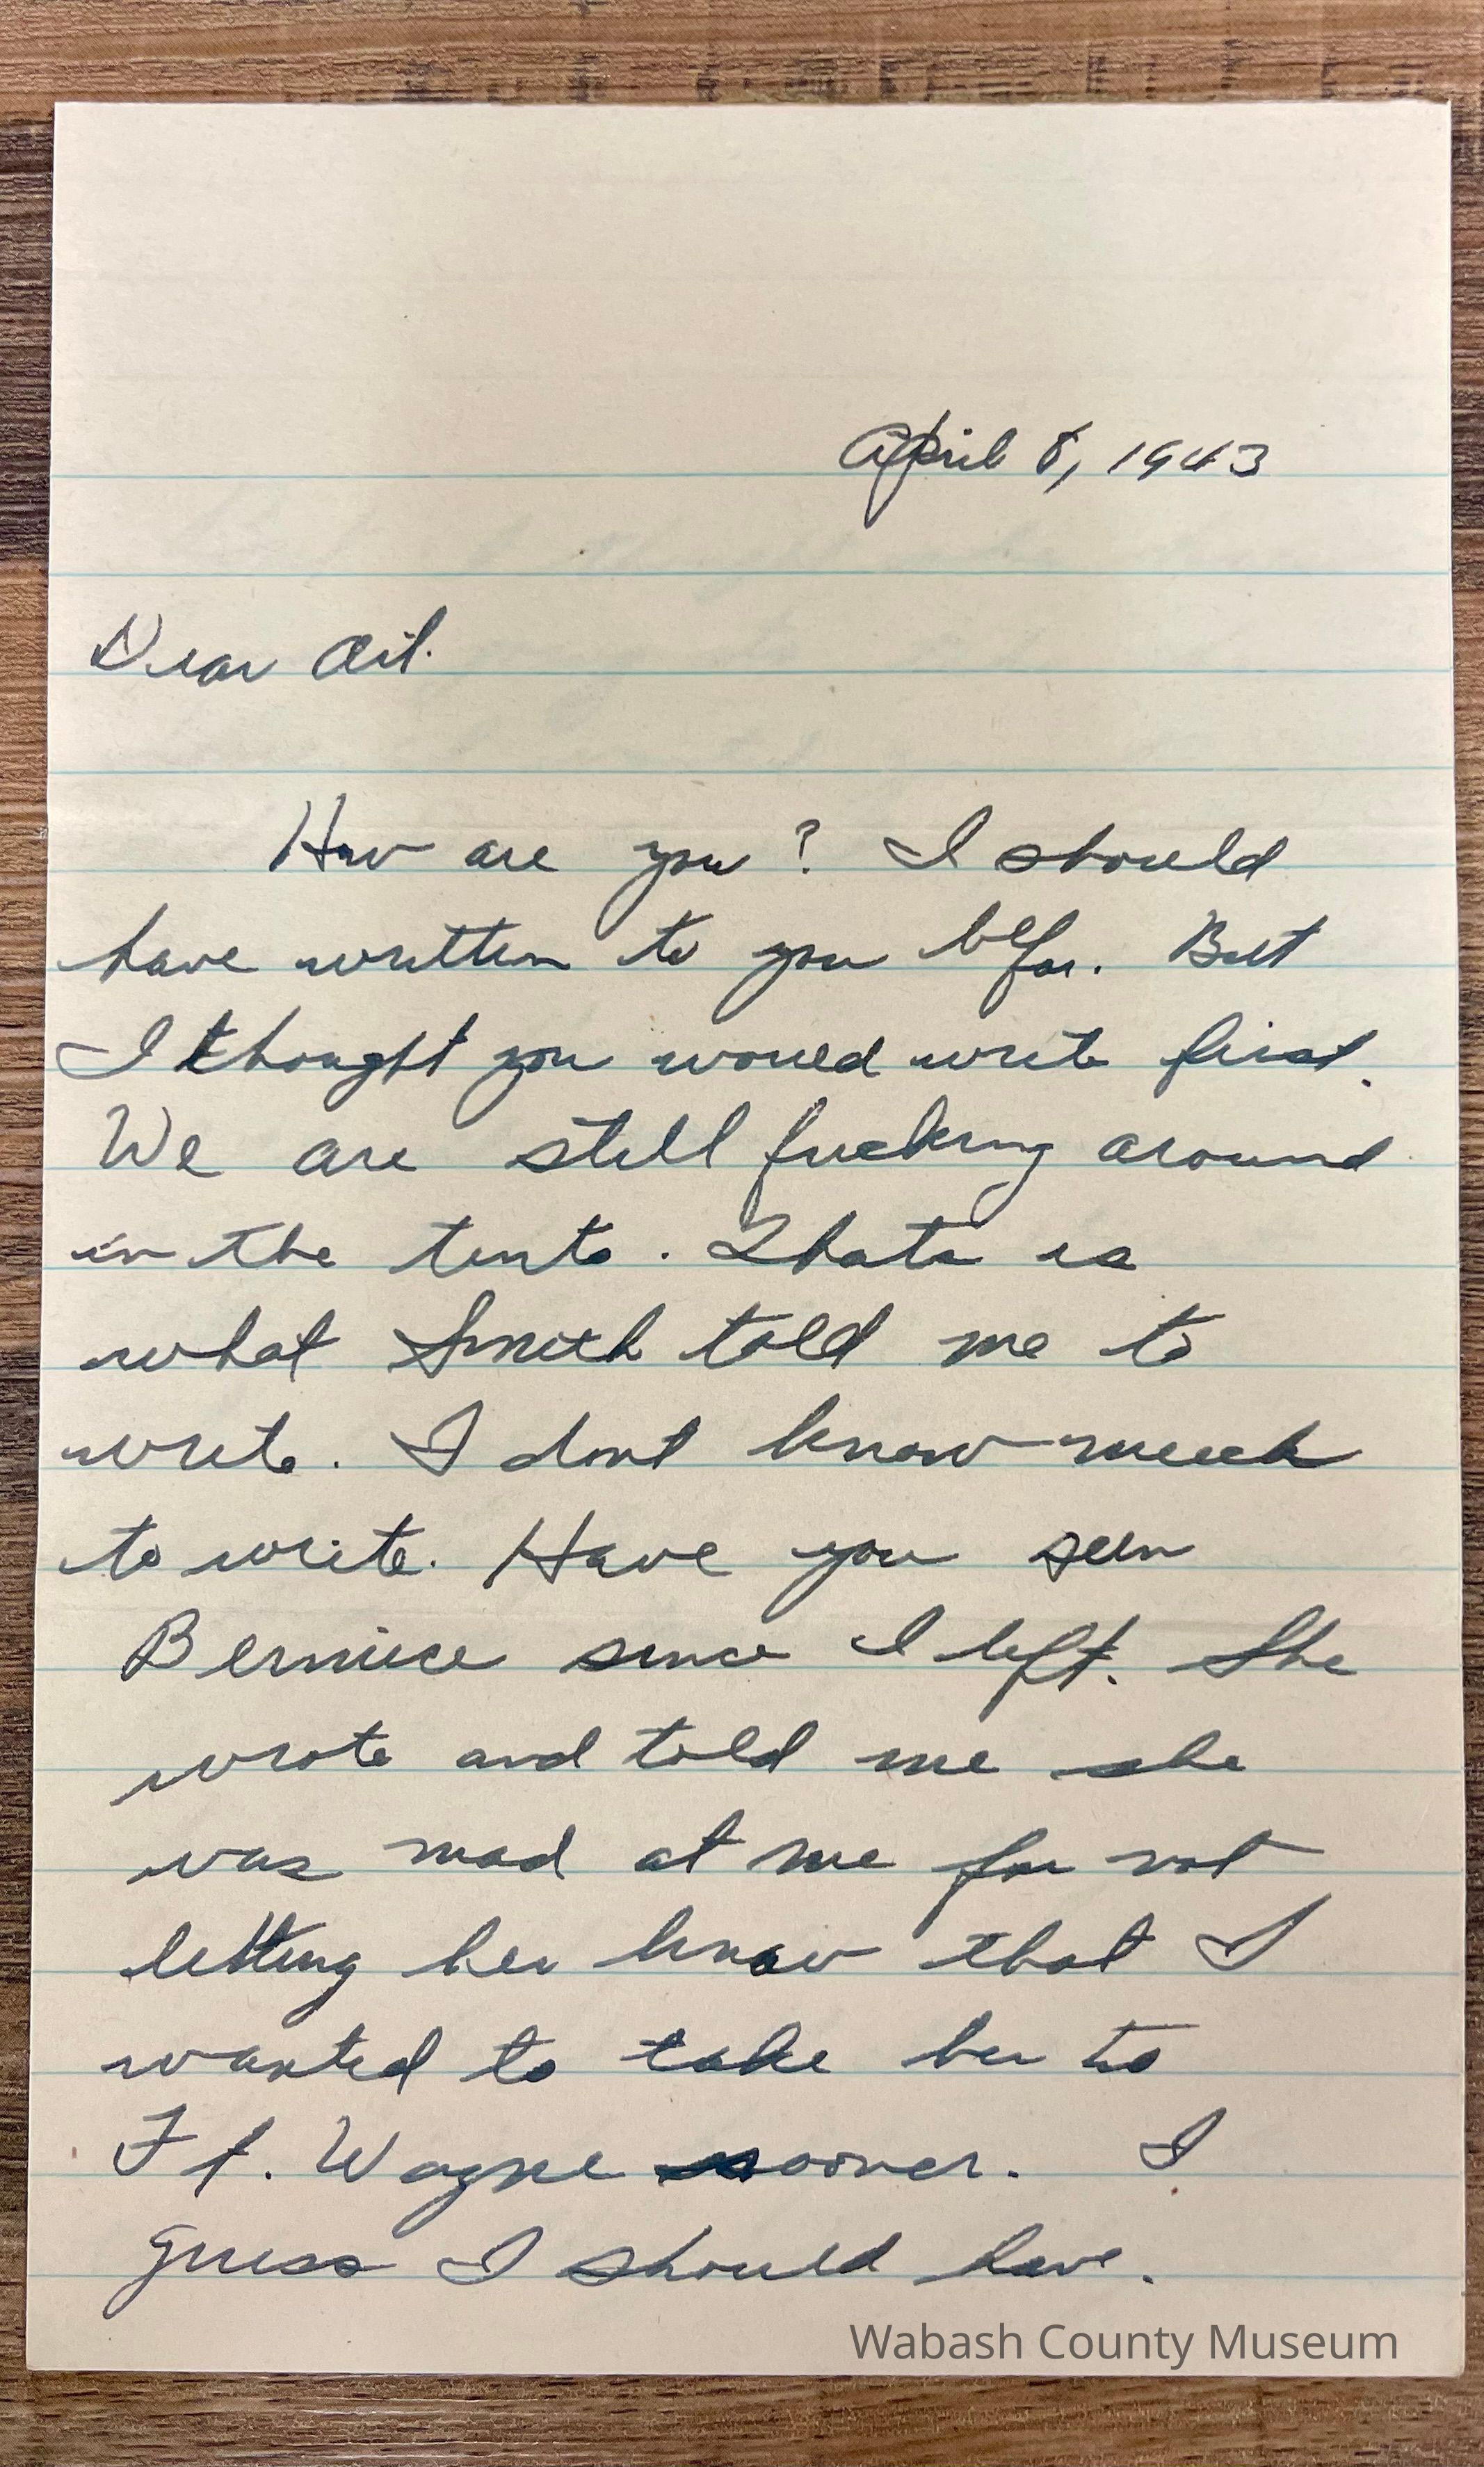 April 8, 1943
Dear Art.
How are you? I should
have written to you befor. But
I thought you would write first.
We are still fucking around
in the tents. Thats is
what Smith told me to
write. I dont know much
to write. Have you seen
Berniece since I left. She
wrote and told me she
was mad at me for not
letting her know that I
wanted to take her to
Ft. Wayne sooner. I
guess I should have.
Wabash County Museum